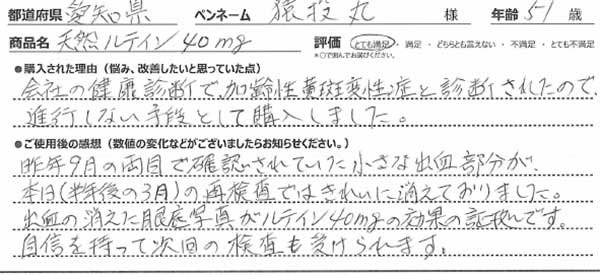 都道府県 愛知県 ペンネーム 猿投丸 様 年齢 51 歳
商品名 天然ルテイン40mg 評価 とても満足・満足・どちらとも言えない・不満足・とても不満足
※○で囲んでお選びください。
●購入された理由（悩み、改善したいと思っていた点）
会社の健康診断で、加齢性黄斑変性症と診断されたので、
進行しない手段として購入しました。
●ご使用後の感想（数値の変化などがございましたらお知らせください。）
昨年9月の両目で確認されていた小さな出血部分が、
本日(半年後の3月)の再検査ではきれいに消えておりました。
出血の消えた眼底写真がルテイン40mgの効果の証拠です。
自信を持って次回の検査も受けられます。